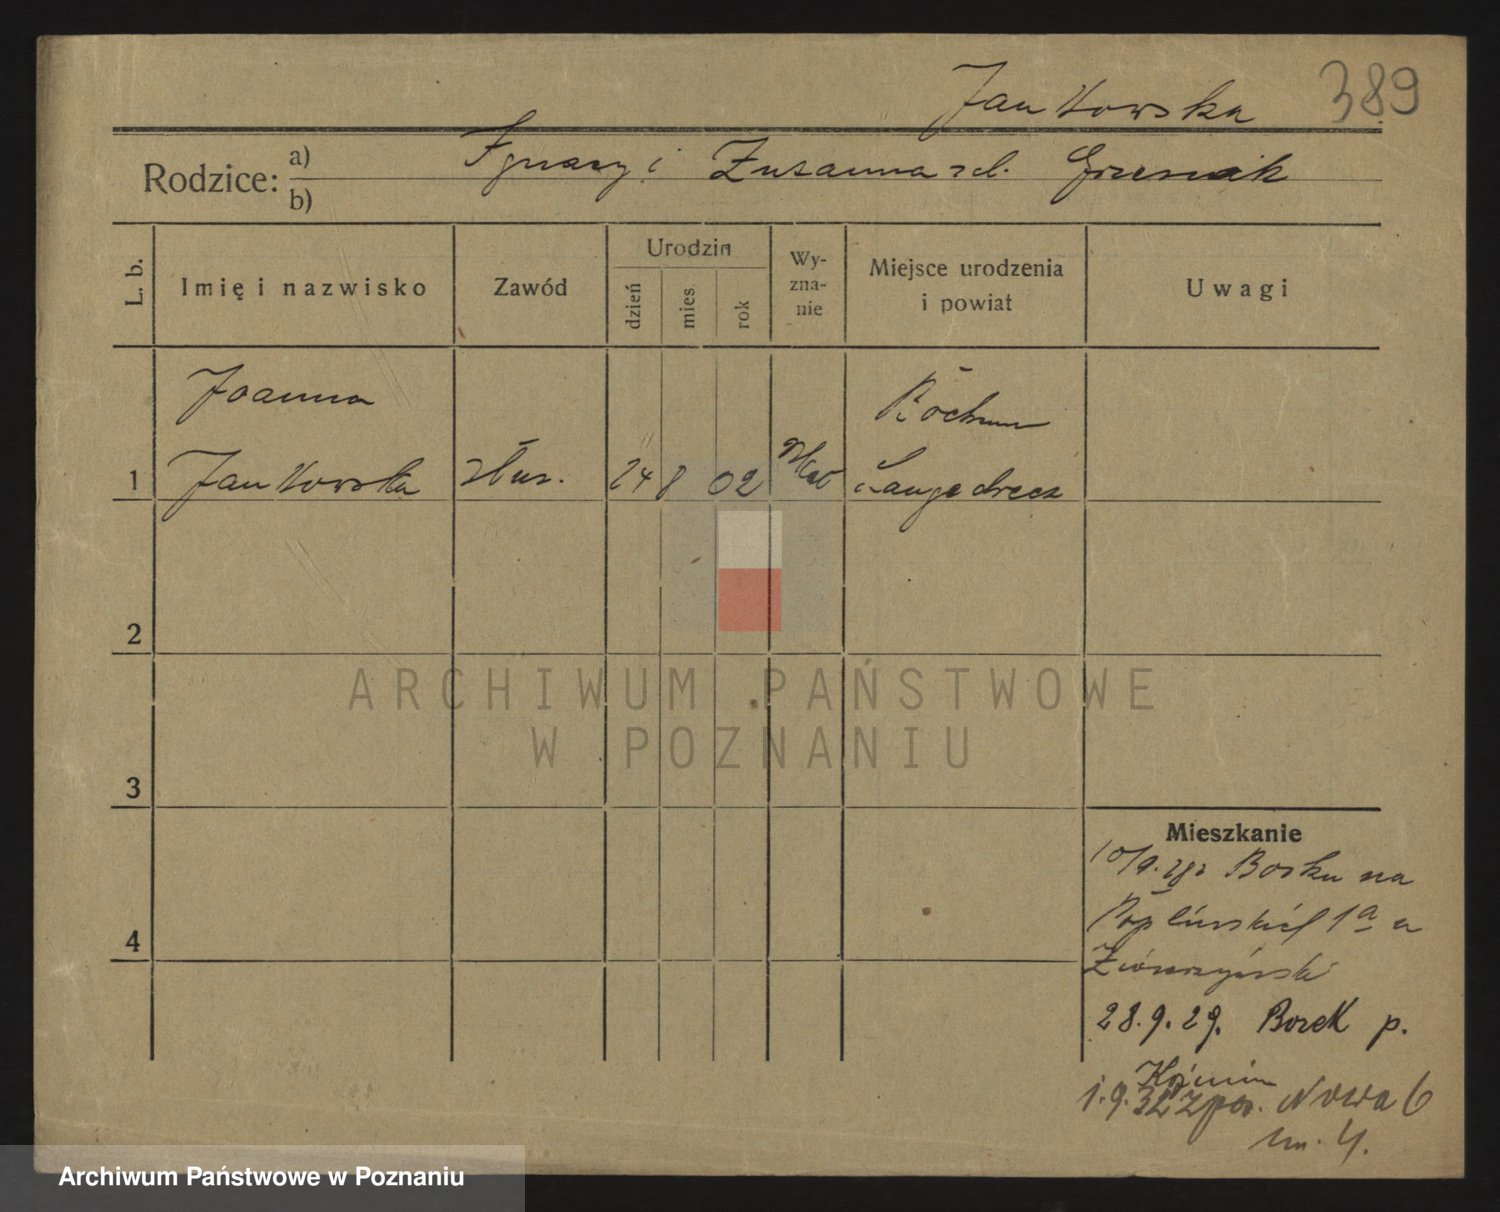 Jankowska 389
Rodzice: a) Ignacy i Zuzanna zd. Grzesiak
b)
L. b. Imię i nazwisko Zawód Urodzin dzień mies. rok Wy-zna-nie Miejsce urodzenia i powiat Uwagi
Joanna Bochum
1 Jankowska służ. 24 8 02 rzkat Langendreez
2
3
4
Mieszkanie
10/9. 28 z Borku na
1a u
28.9.29. Borek p.
Koźmin
1.9.32 z poz. Nowa 6
m. 4.
ARCHIWUM PAŃSTWOWE
W POZNANIU
Archiwum Państwowe w Poznaniu